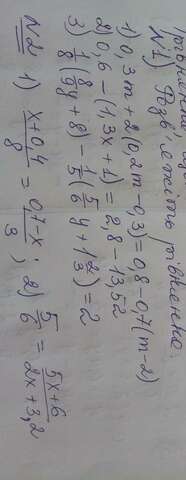 №1) Розв'яжіть рівняння.
1) 0,3m + 2(0,2m - 0,3) = 0,8 - 0,7(m-2)
2) 0,6 - (1,3x + 1) = 2,8 - 13,52
3) 1/8 (8/9 y + 8) - 1/5 (5/6 y + 1 2/3) = 2
№2 1) (x+0,4)/8 = (0,7-x)/3 ; 2) 5/6 = (5x+6)/(2x+3,2)